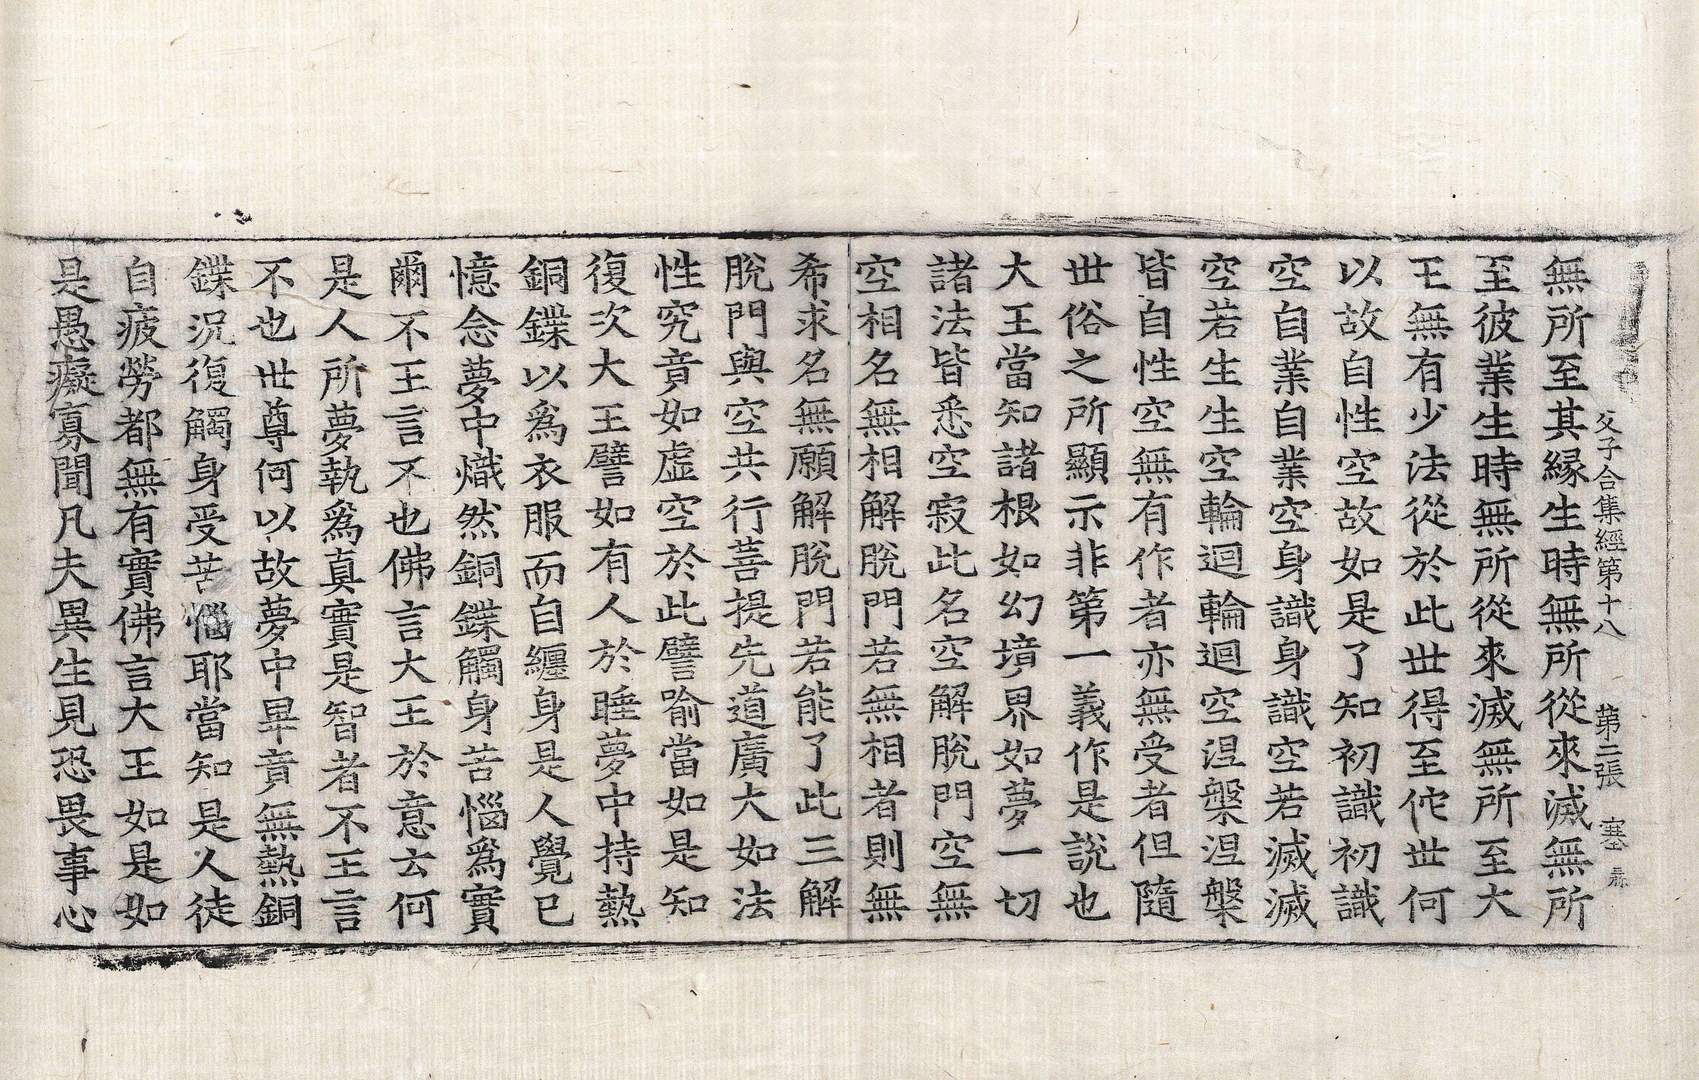 父子合集經第十八 第二張 塞
無所至其縁生時無所從來滅無所
至彼業生時無所從來滅無所至大
王無有少法從於此世得至佗世何
以故自性空故如是了知初識初識
空自業自業空身識身識空若滅滅
空若生生空輪迴輪迴空涅槃涅槃
皆自性空無有作者亦無受者但隨
世俗之所顯示非第一義作是說也
大王當知諸根如幻境界如夢一切
諸法皆悉空寂此名空解脫門空無
空相名無相解脫門若無相者則無
希求名無願解脫門若能了此三解
脫門與空共行菩提先道廣大如法
性究竟如虛空於此譬喻當如是知
復次大王譬如有人於睡夢中持熱
銅鍱以爲衣服而自纏身是人覺已
憶念夢中熾然銅鍱觸身苦惱爲實
爾不王言不也佛言大王於意云何
是人所夢執爲真實是智者不王言
不也世尊何以故夢中畢竟無熱銅
鍱況復觸身受苦惱耶當知是人徒
自疲勞都無有實佛言大王如是如
是愚癡寡聞凡夫異生見恐畏事心